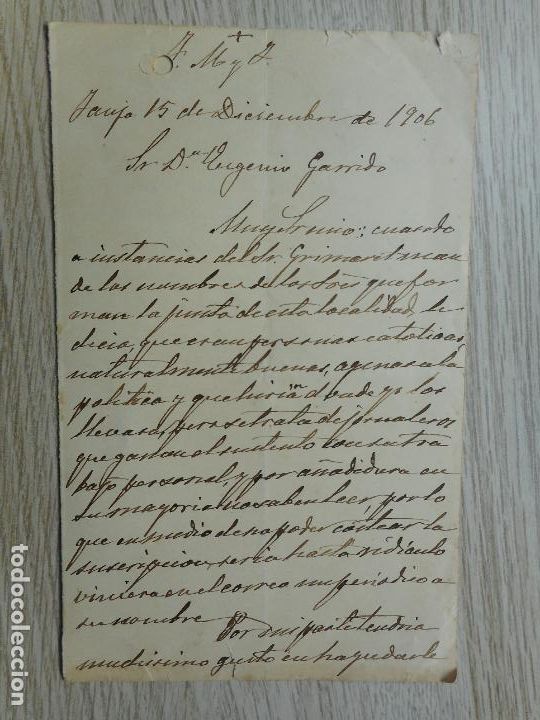 +
J. M y J.
Jauja 15 de Diciembre de 1906
Sr Dn Eugenio Garrido
Muy Sr mio: cuando
a instancias del Sr. Grimarest man
de los nombres de los Srês que for
man la junta de esta localidad, le
decia, que eran personas catolicas,
naturalmente buenas, agenas a la
politica y que irian donde yo los
llevase, pero se trata de jornaleros
que ganan el sustento con su tra
bajo personal, y por añadidura en
su mayoria no saben leer, por lo
que en medio de no poder costear la
suscripcion, seria hasta ridiculo
viniera en el correo un periodico a
su nombre
Por mi parte tendria
muchisimo gusto en ayudarle
todocoleccion